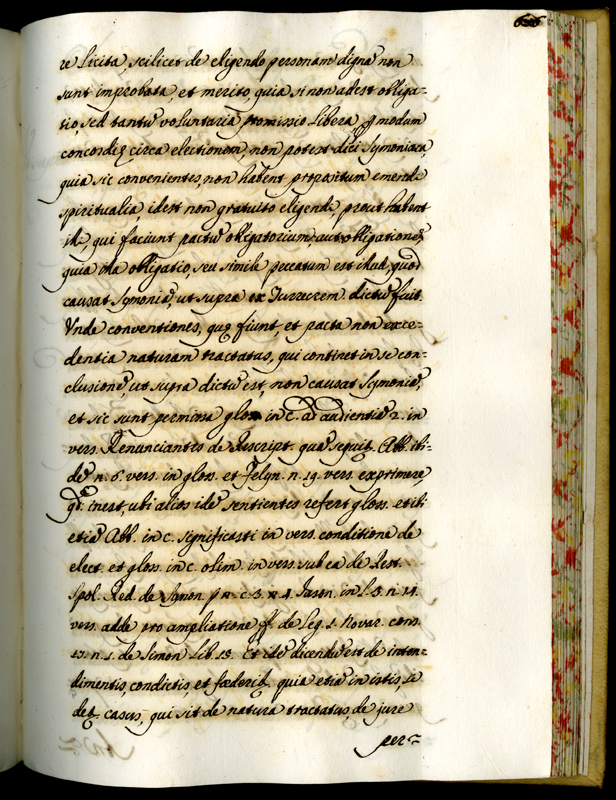 606
re licita, scilicet de eligendo personam dignã non
sunt improbata, et merito, quia si non adest obliga=
tio, sed tantũ voluntaria promissio libera p modum
concordię circa electionem, non potest dici Symoniaca,
quia sic convenientes, non habent propositum emendi
spiritualia idest non gratuito eligendi, prout habent
illi, qui faciunt pactũ obligatorium, aut obligationẽ,
quia illa obligatio, seu simile peccatum est illud, quod
causat Symoniã, ut supra ex Turrecrem. dictũ fuit.
Unde conventiones, quę fiunt, et pacta non exce=
dentia naturam tractatus, qui continet in se con=
clusionẽ, ut supra dictũ est, non causat Symoniã,
et sic sunt permissa glos. in c. ad audientiã 2. in
vers. Renunciantes de Rescript. quã sequit. Abb. ibi=
dẽ n. 6. vers. in gloss. et Felyn. n. 19. vers. exprimere
inest, ubi alios idẽ sentientes refert gloss. et ibi
etiã Abb. in c. significasti in vers. conditione de
elect. et gloss. in c. olim. in vers. sub ea de Rest.
Spol. Red. de Symon. p. c. 3. n. 4. Jason. in l. 3. n. 14.
vers. adde pro ampliatione ff. de Leg. 1. Navar. cons.
n. 1. de Simon lib. 13. Et idẽ dicendũ est de inten=
dimentis, condictis, et fœderib. quia etiã in istis, si
casus, qui sit de natura tractatus, de jure
per=